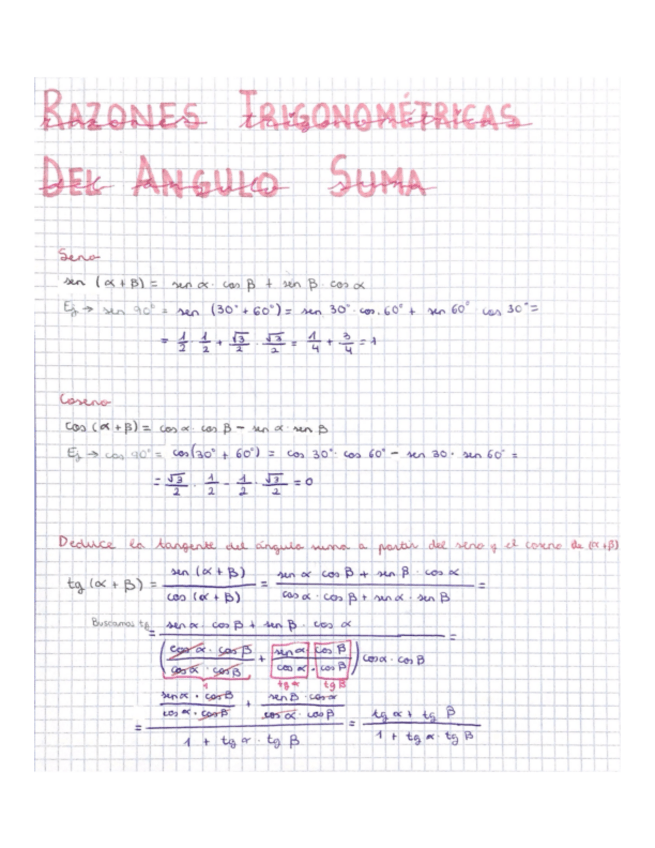 RAZONES TRIGONOMÉTRICAS
DEL ANGULO SUMA
Seno
sen (α + β) = sen α · cos β + sen β · cos α
Ej → sen 90° = sen (30° + 60°) = sen 30° · cos. 60° + sen 60° cos 30° =
= 1/2 · 1/2 + √3/2 · √3/2 = 1/4 + 3/4 = 1
Coseno
cos (α + β) = cos α · cos β - sen α · sen β
Ej → cos 90° = cos (30° + 60°) = cos 30° · cos 60° - sen 30 · sen 60° =
= √3/2 · 1/2 - 1/2 · √3/2 = 0
Deduce la tangente del ángulo suma a partir del seno y el coseno de (α+β)
tg (α + β) = sen (α + β) / cos (α + β) = sen α cos β + sen β · cos α / cos α · cos β + sen α · sen β =
Buscamos tg
= sen α · cos β + sen β · cos α / (cos α · cos β / cos α · cos β + sen α / cos α · cos β / cos β) cos α · cos β =
1 tg α tg β
= sen α · cos β / cos α · cos β + sen β · cos α / cos α · cos β / 1 + tg α · tg β = tg α + tg β / 1 + tg α · tg β